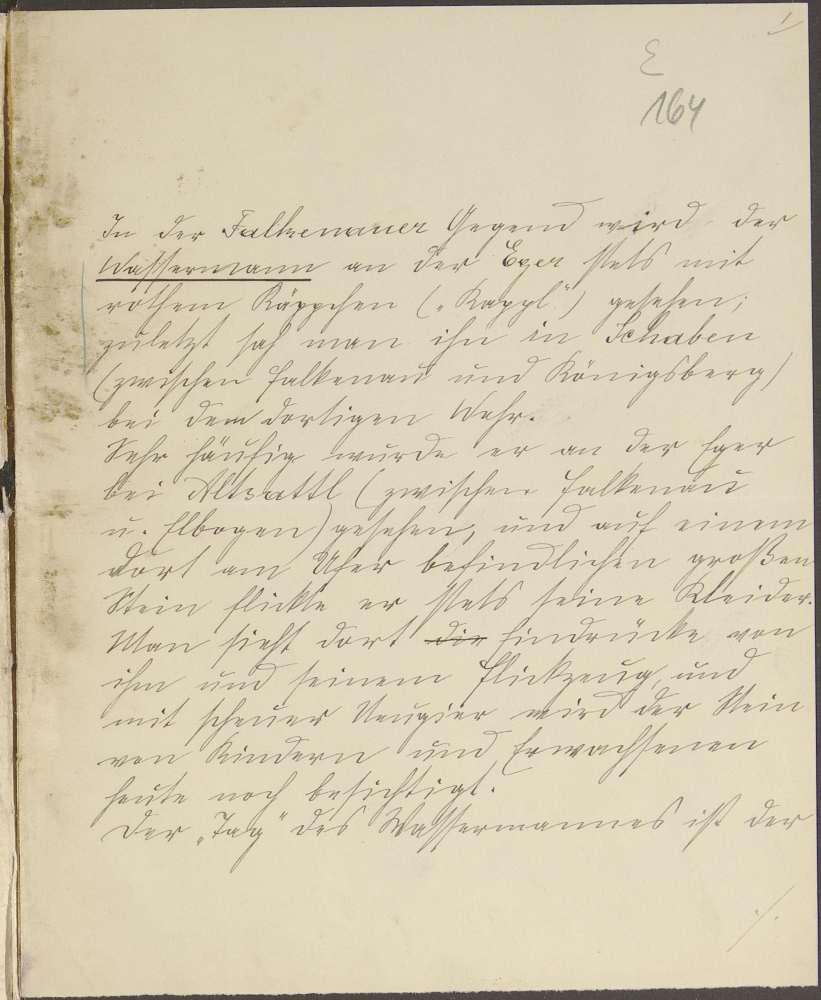 1
E
164
In der Falkenauer Gegend wird der
Wassermann an der Eger stets mit
rothem Käppchen („Kappl") gesehen;
zuletzt sah man ihn in Schaben
(zwischen Falkenau und Königsberg)
bei dem dortigen Wehr.
Sehr häufig wurde er an der Eger
bei Altsattl (zwischen Falkenau
u. Elbogen) gesehen, und auf einem
dort am Ufer befindlichen großen
Stein flickte er stets seine Kleider.
Man sieht dort die Eindrücke von
ihm und seinem Flickzeug, und
mit scheuer Neugier wird der Stein
von Kindern und Erwachsenen
heute noch besichtigt.
Der „Tag" des Wassermannes ist der
./.